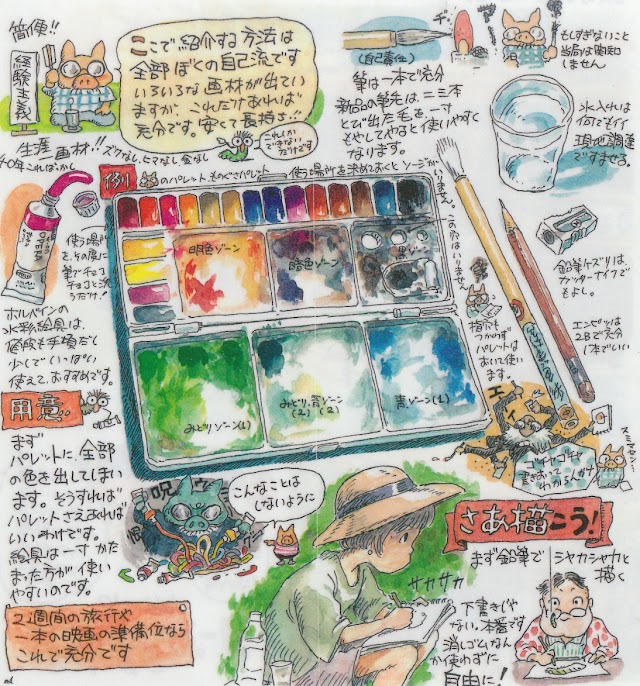 簡便!!
経験主義
ここで紹介する方法は
全部ぼくの自己流です
いろいろな画材が出てい
ますが、これだけあれば
充分です。安くて長持ち!!
生涯画材!!
40年こればっかし
(自己責任)
筆は一本で充分
新品の筆先は、二三本
とび出た毛を、一寸
もやしてやると使いやすく
なります。
もしすぎないこと
当局は関知
しません
水入れは
何でもイイ
現地調達
ですませる。
例
のパレット、そのぐさパレット
使う場所を決めておくとゾーンが
この穴はいりません。
明色ゾーン
暗色ゾーン
黒ゾーン
みどりゾーン(1)
みどり、青ゾーン
(2)(2)
青ゾーン(1)
OPERA
使う場所
を、その度に
筆でチョコ
チョコと洗
うだけ!
ホルベインの
水彩絵具は、
値段も手頃だし
少しでいっぱい
使えて、おすすめです。
指穴も
つかわず
パレットは
おいて使い
ます。
鉛筆ケズリは、
カッターナイフで
もよし。
エンピツは
2Bで充分
1本でいい
用意。
まず
パレットに、全部
の色を出してしまい
ます。そうすれば
パレットさえあれば
いいわけです。
絵具は一寸かた
まった方が使い
やすいのです。
呪
こんなことは
しないように
2週間の旅行や
一本の映画の準備位なら
これで充分です
さあ描こう!
まず鉛筆で
シャカシャカと
描く
サカサカ
下書きじゃ
ない。本番です
消しゴムなん
か使わずに
自由に!